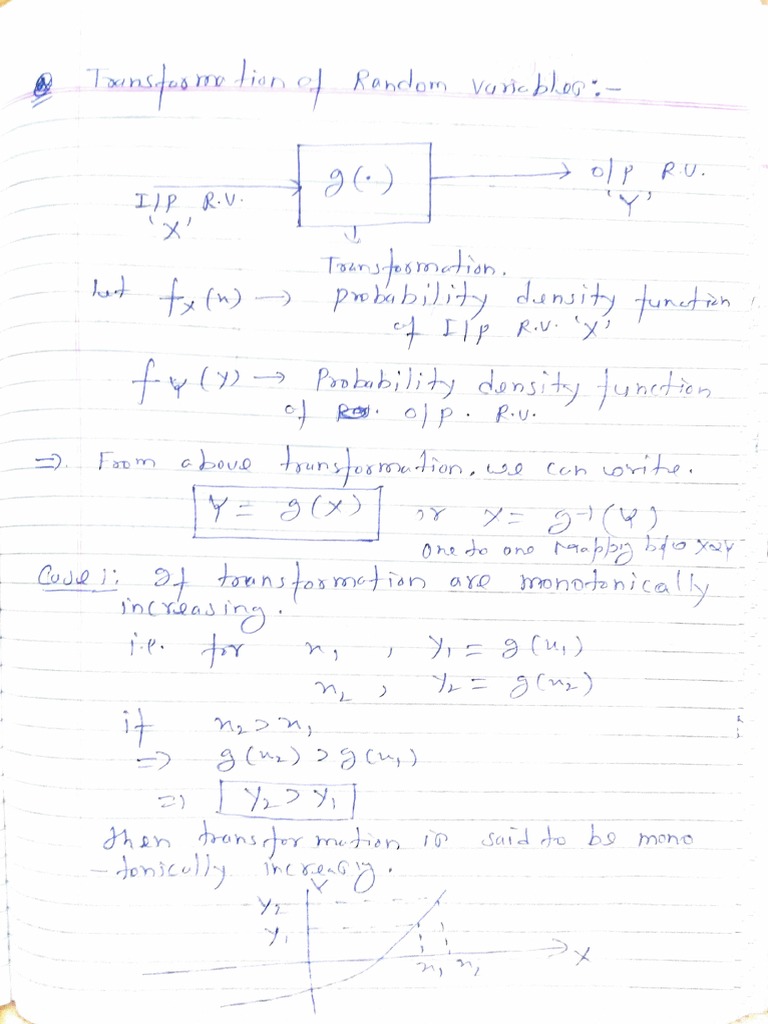 Transformation of Random variables:-
g(·)
I/P R.V.
'X'
O/P R.U.
'Y'
Transformation.
Let fx(x) → probability density function
of I/p R.V. 'X'
fY(Y) → Probability density function
of O/P. R.U.
⇒. From above transformation, we can write.
Y = g(X) or X = g-1(Y)
one to one mapping b/w X & Y
Case 1: If transformation are monotonically
increasing.
i.e. for x1 , Y1 = g(x1)
x2 , Y2 = g(x2)
if x2 > x1
⇒ g(x2) > g(x1)
⇒ Y2 > Y1
then transformation is said to be mono
-tonically increasing.
Y
Y2
Y1
X
x1 x2